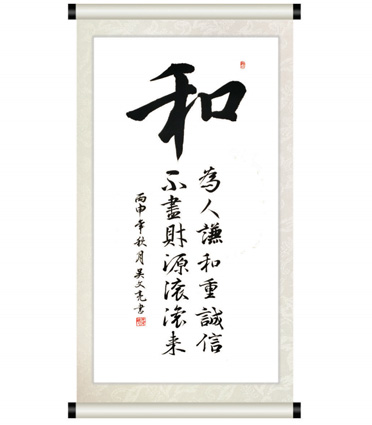 和
為人謙和重誠信
不盡財源滚滚来
丙申年秋月吴文亮書